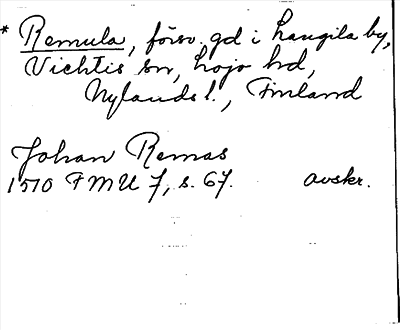 * Remula, försv. gd i Haugila by,
Vichtis sn, Lojo hd,
Nylands l., Finland
Johan Remas
1510 FMU 7, s. 67. avskr.